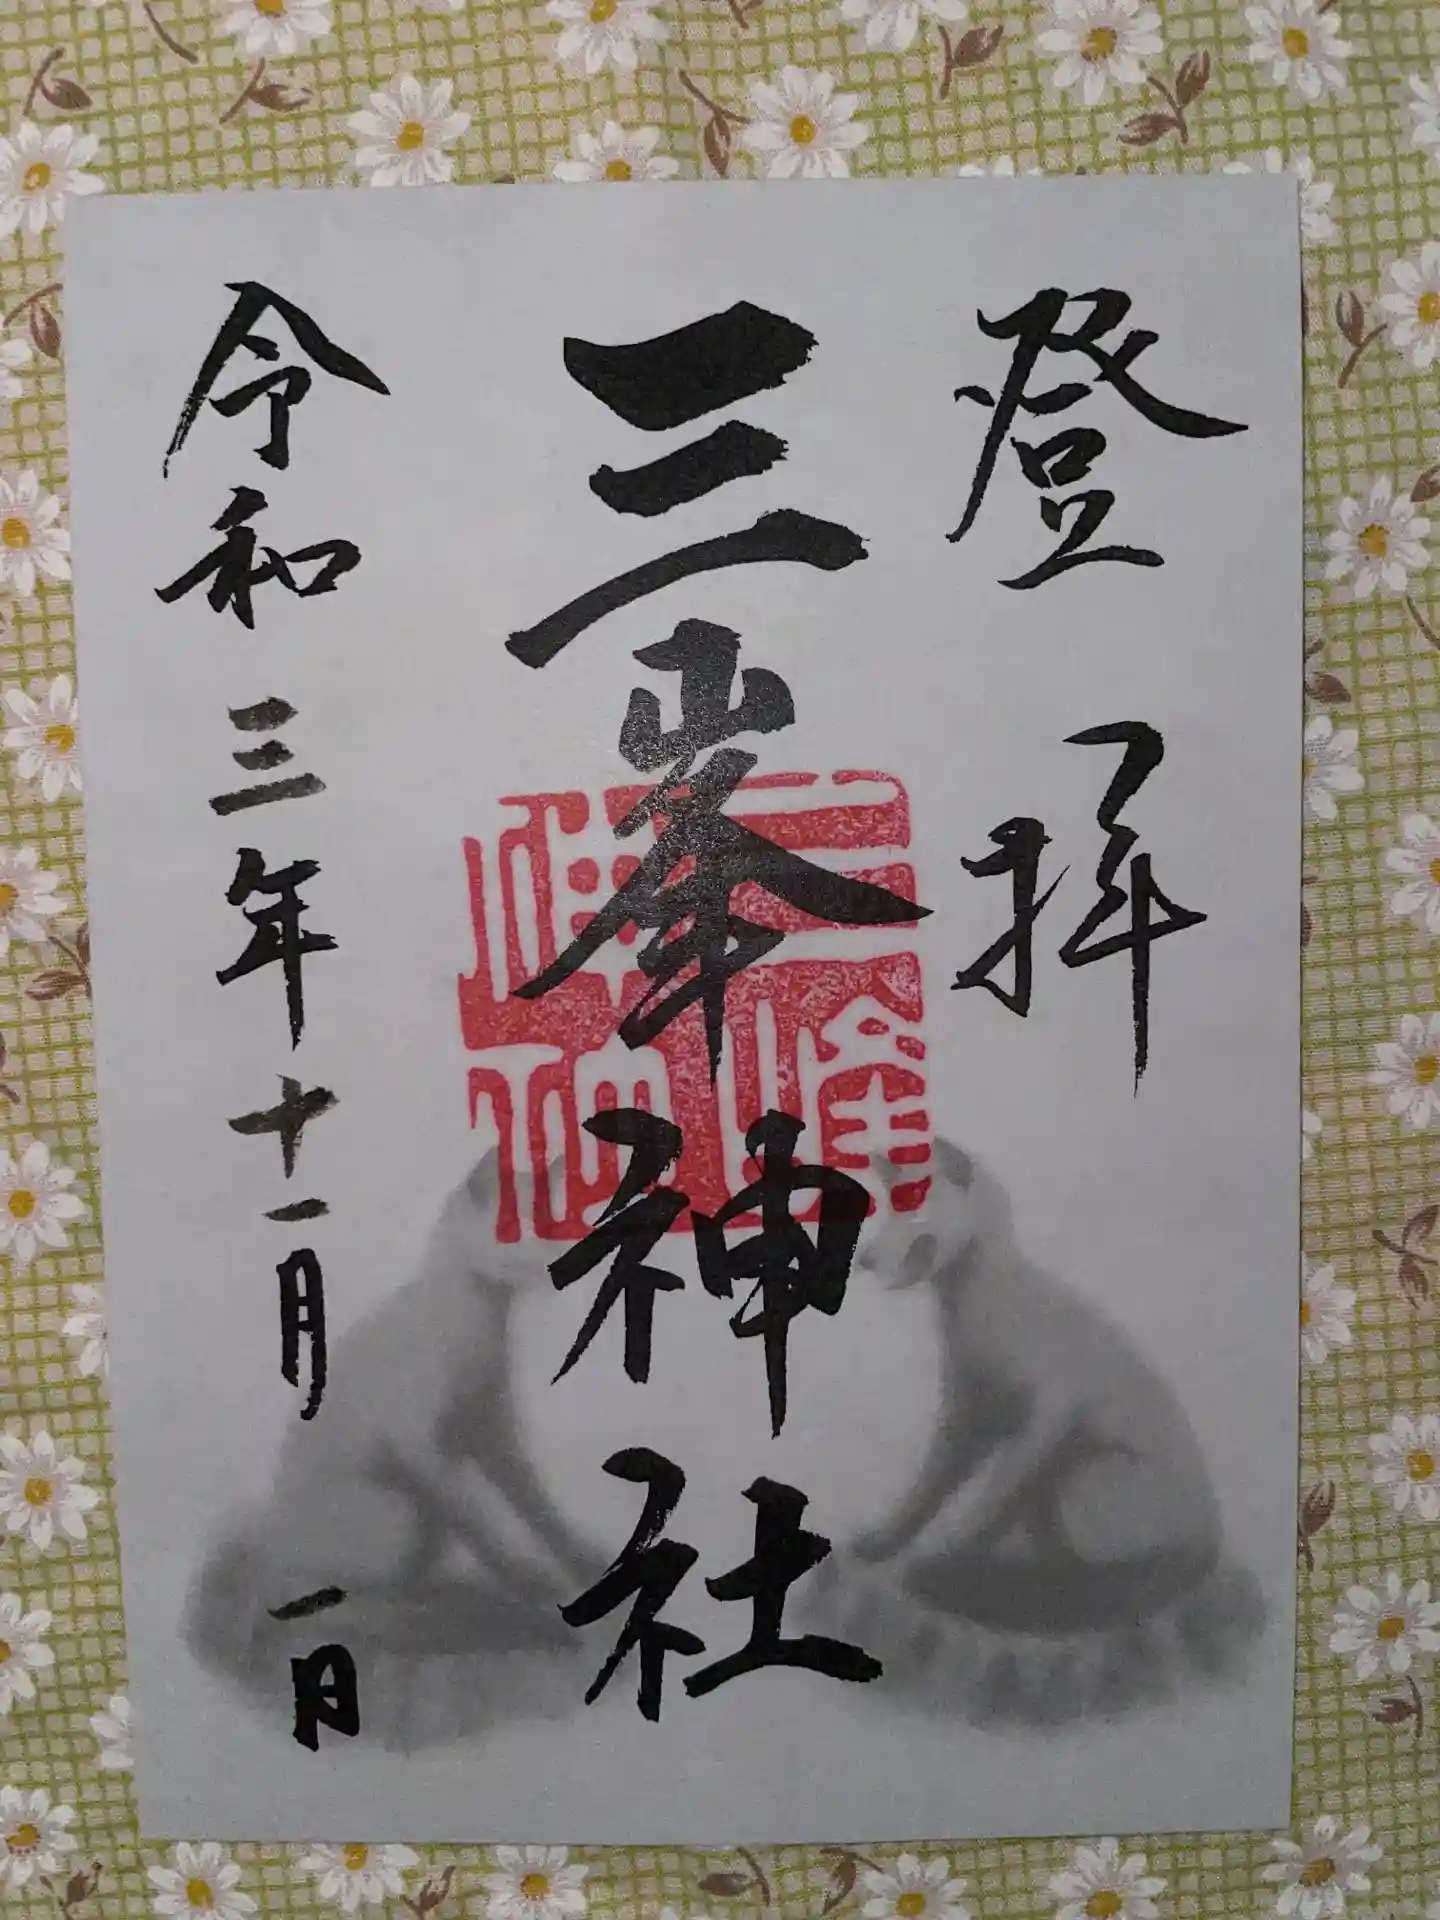 登拝
三峯神社
三峯神社
令和三年十一月一日